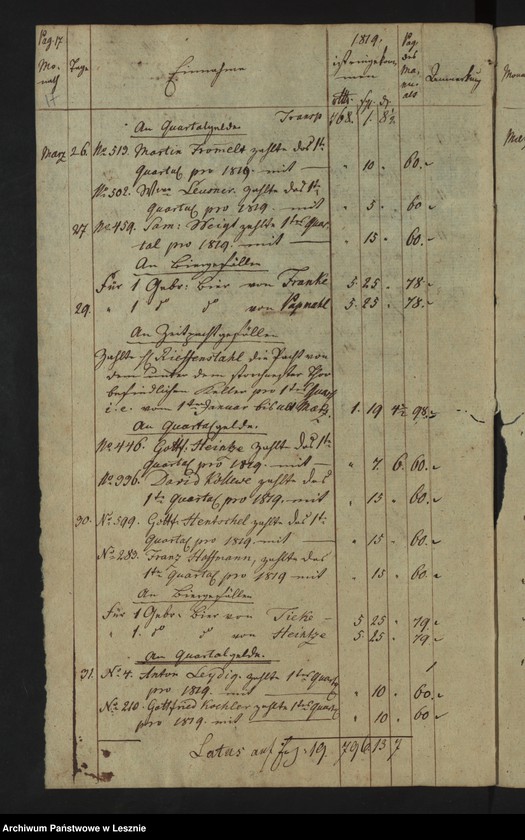 Pag. 17
Monath
Tage
Einnahme
1819.
ist eingekommen
Rtlr. sgl. d.
Pag. des Manuals
Bemerkung
17
An Quartalgelde. Transp. 768. 1. 8½
Marz 26. No. 513. Martin Fromelt zahlte das 1te
Quartal pro 1819. mit — " 10 " 60.
No. 502. Wwe. zahlte das 1te
Quartal pro 1819. mit " 5 " 60
27 No. 459. Sam: Weigt zahlte 1tes Quar-
tal pro 1819. mit — " 15 " 60.
An Biergefällen
Für 1 Gebr: Bier von Franke 5 25 " 78
29. " 1 do do von 5 25 " 78.
An Zeitpachtgefällen
Zahlte H. Rieffenstahl die Pacht von
dem unter dem Thor
befindlichen Keller pro 1tes Quart
i. e. vom 1ten Januar bis ult Martz. 1. 19 4½ 98.
An Quartalgelde.
No. 446. Gottf. Heintze zahlt das 1te
Quartal pro 1819. mit — " 7 6. 60.
No. 336. David zahlte das
1te Quartal pro 1819. mit " 15 " 60.
30. No. 599. Gottf. Hentschel zahlte das 1te
Quartal pro 1819. mit — " 15 " 60.
No. 283. Franz Hoffmann, zahlte das
1te Quartal pro 1819 mit " 15 " 60.
An Biergefällen
Für 1 Gebr: Bier von Ticke — 5 25 " 79.
" 1. do do von Heintze 5 25 " 79.
An Quartalgelde.
31. No. 4. Anton Leydig. zahlte 1tes Quartal
pro 1819. mit — " 10 " 60
No. 210. Gottfried Kochler zahlte 1tes Quartal
pro 1819. mit " 10 " 60
Latus auf pag. 19. 796 13 7
Archiwum Państwowe w Lesznie
szukajwarchiwach.gov.pl